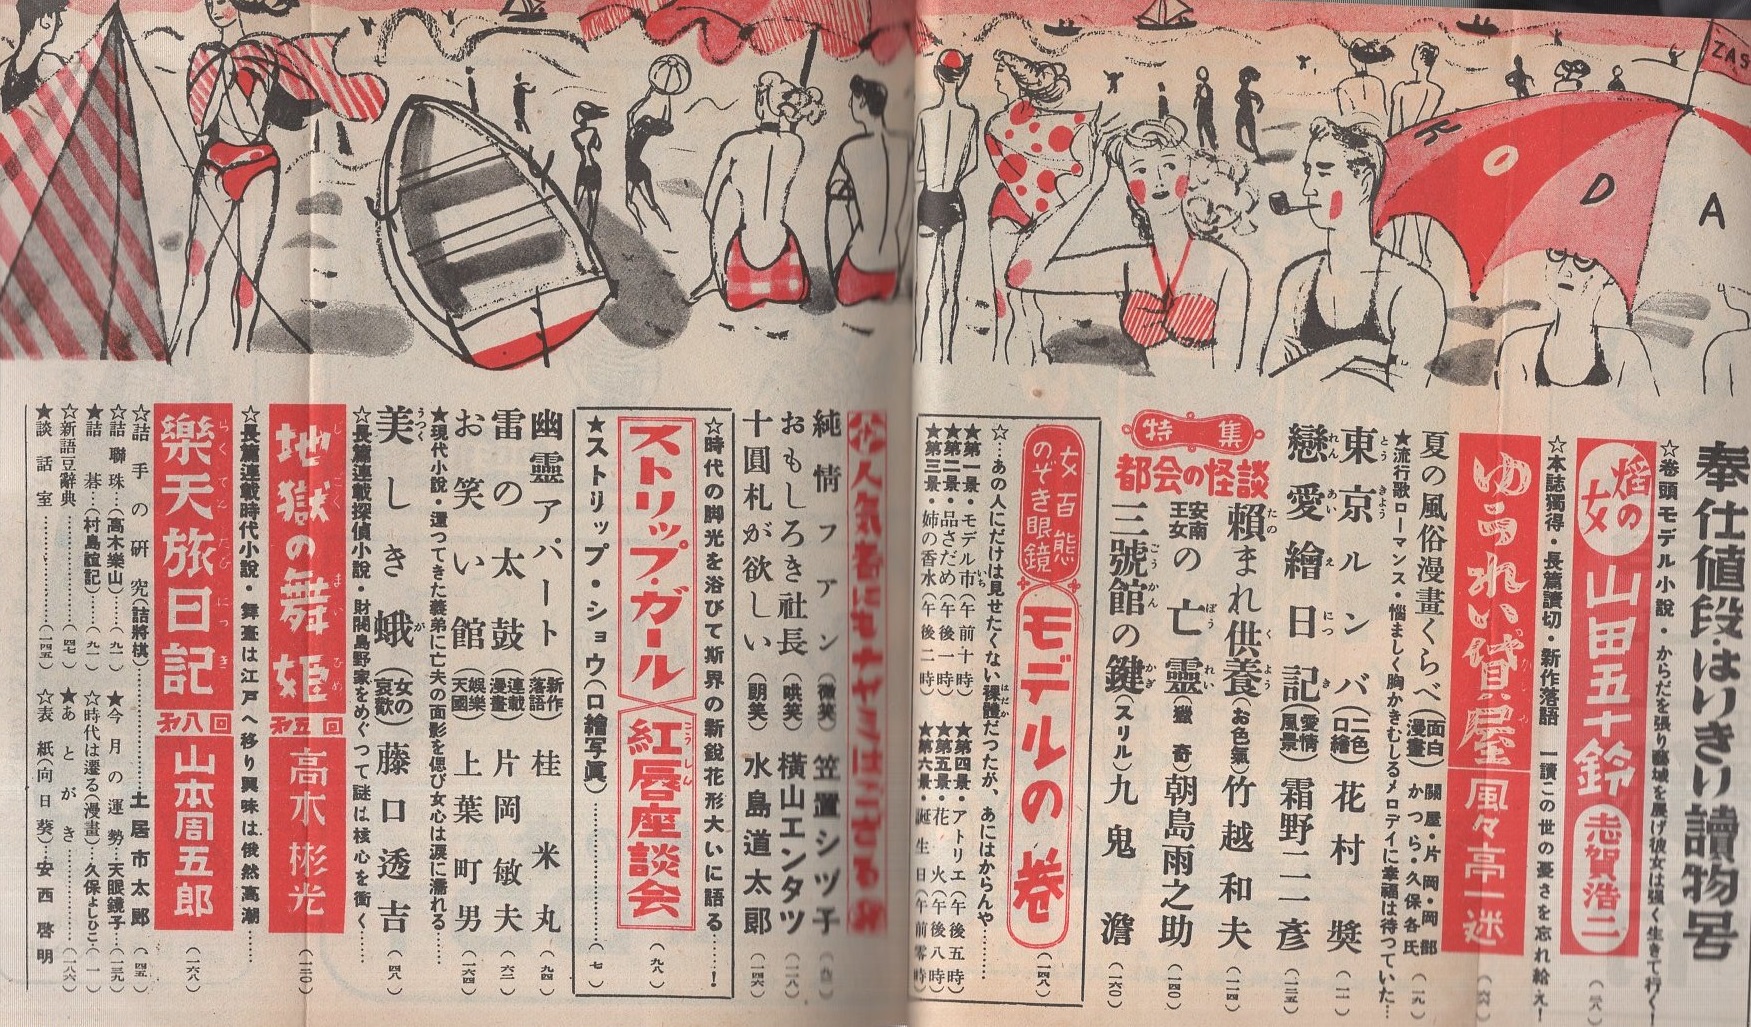 ZAS
H O D A
奉仕値段・はいきり讀物号
☆巻頭モデル小説・からだを張り藝城を展げ彼女は强く生きて行く!
熖の女
山田五十鈴
志賀浩二
☆本誌獨得・長篇讀切・新作落語 一讀この世の憂さを忘れ給え!
ゆうれい貸屋
風々亭一迷
夏の風俗漫畫くらべ(面白漫畫)關屋・片岡・岡部 かつら・久保各氏(一九)
★流行歌ローマンス・惱ましく胸かきむしるメロデイに幸福は待つていた…
東京ルンバ(二色口繪)花村奬(一一)
戀愛繪日記(愛情風景)霜野二一彦(一三五)
特集
都会の怪談
賴まれ供養(お色氣)竹越和夫(一一四)
安南王女の亡靈(獵奇)朝島雨之助(一四〇)
三號館の鍵(スリル)九鬼澹(一六〇)
女百態のぞき眼鏡
モデルの巻
(一四八)
☆…あの人にだけは見せたくない裸體だつたが、あにはからんや……
★第一景・モデル市(午前十時)
★第二景・品さだめ(午後一時)
★第三景・姉の香水(午後二時)
★第四景・アトリエ(午後五時)
★第五景・花火(午後八時)
★第六景・誕生日(午前零時)
人気者にもナヤミはござる
純情フアン(微笑)笠置シヅ子
おもしろき社長(哄笑)横山エンタツ(一二八)
十圓札が欲しい(朗笑)水島道太郎(一四六)
☆時代の脚光を浴びて斯界の新銳花形大いに語る……!
ストリップ・ガール
紅唇座談会
(九八)
★ストリップ・ショウ(口繪写眞)…………(七)
幽靈アパート(新作落語)桂米丸(九四)
雷の太鼓(連載漫畫)片岡敏夫(六二)
お笑い館(娯樂天國)上葉町男(一六四)
★現代小説・還つてきた義弟に亡夫の面影を偲び女心は涙に濡れる……
美しき蛾(女の哀歡)藤口透吉(四八)
☆長篇連載探偵小説・財閥島野家をめぐつて謎は核心を衝く……
地獄の舞姫
第五回
高木彬光
(一二〇)
☆長篇連載時代小説・舞臺は江戸へ移り興味は俄然高潮……
樂天旅日記
第八回
山本周五郎
(一六八)
☆詰手の研究(詰將棋)…………土居市太郎(四五)
☆詰聯珠…(高木樂山)……(九一)
★詰碁…(村島誼記)……(九一)
☆新語豆辭典…………(四七)
★談話室…………(一四五)
★今月の運勢…天眼鏡子…(一三九)
☆時代は遷る(漫畫)…久保よしひこ…(一一)
★あとがき…………(一八八)
☆表紙(向日葵)…安西啓明